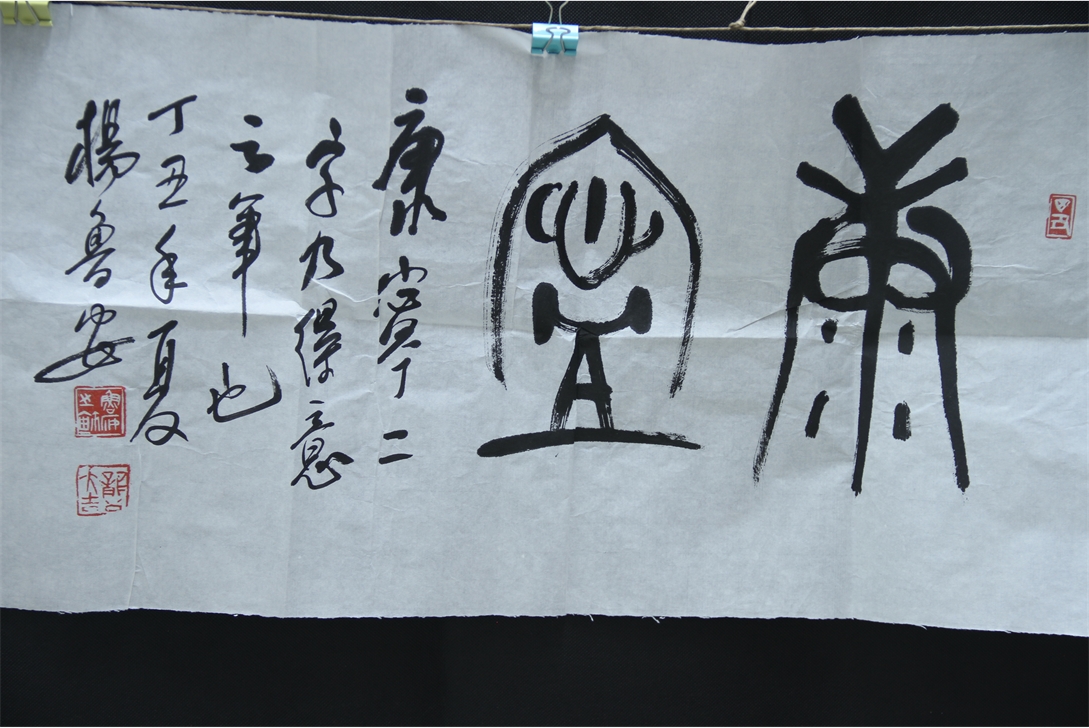 康寧
康寧二
字乃得意
之筆也
丁丑年夏
楊魯安